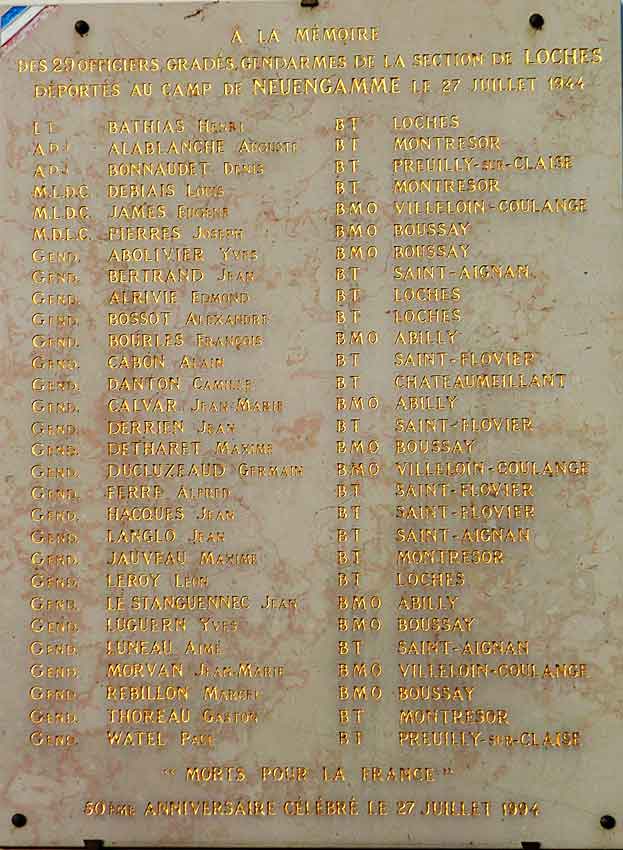 À LA MÉMOIRE
DES 29 OFFICIERS, GRADÉS, GENDARMES DE LA SECTION DE LOCHES
DÉPORTÉS AU CAMP DE NEUENGAMME LE 27 JUILLET 1944
LT. BATHIAS HENRI BT LOCHES
ADJ. ALABLANCHE AUGUSTE BT MONTRESOR
ADJ. BONNAUDET DENIS BT PREUILLY-SUR-CLAISE
M.L.D.C. DEBIAIS LOUIS BT MONTRESOR
M.L.D.C. JAMES EUGENE BMO VILLELOIN-COULANGE
M.D.L.C. PIERRES JOSEPH BMO BOUSSAY
GEND. ABOLIVIER YVES BMO BOUSSAY
GEND. BERTRAND JEAN BT SAINT-AIGNAN
GEND. ALRIVIE EDMOND BT LOCHES
GEND. BOSSOT ALEXANDRE BT LOCHES
GEND. BOURLES FRANÇOIS BMO ABILLY
GEND. CABON ALAIN BT SAINT-FLOVIER
GEND. DANTON CAMILLE BT CHATEAUMEILLANT
GEND. CALVAR JEAN-MARIE BMO ABILLY
GEND. DERRIEN JEAN BT SAINT-FLOVIER
GEND. DETHARET MAXIME BMO BOUSSAY
GEND. DUCLUZEAUD GERMAIN BMO VILLELOIN-COULANGE
GEND. FERRE ALFRED BT SAINT-FLOVIER
GEND. HACQUES JEAN BT SAINT-FLOVIER
GEND. LANGLO JEAN BT SAINT-AIGNAN
GEND. JAUVEAU MAXIME BT MONTRESOR
GEND. LEROY LEON BT LOCHES
GEND. LE STANGUENNEC JEAN BMO ABILLY
GEND. LUGUERN YVES BMO BOUSSAY
GEND. LUNEAU AIMÉ BT SAINT-AIGNAN
GEND. MORVAN JEAN-MARIE BMO VILLELOIN-COULANGE
GEND. REBILLON MARCEL BMO BOUSSAY
GEND. THOREAU GASTON BT MONTRESOR
GEND. WATEL PAUL BT PREUILLY-SUR-CLAISE
"MORTS POUR LA FRANCE"
50ÈME ANNIVERSAIRE CÉLÉBRÉ LE 27 JUILLET 1994